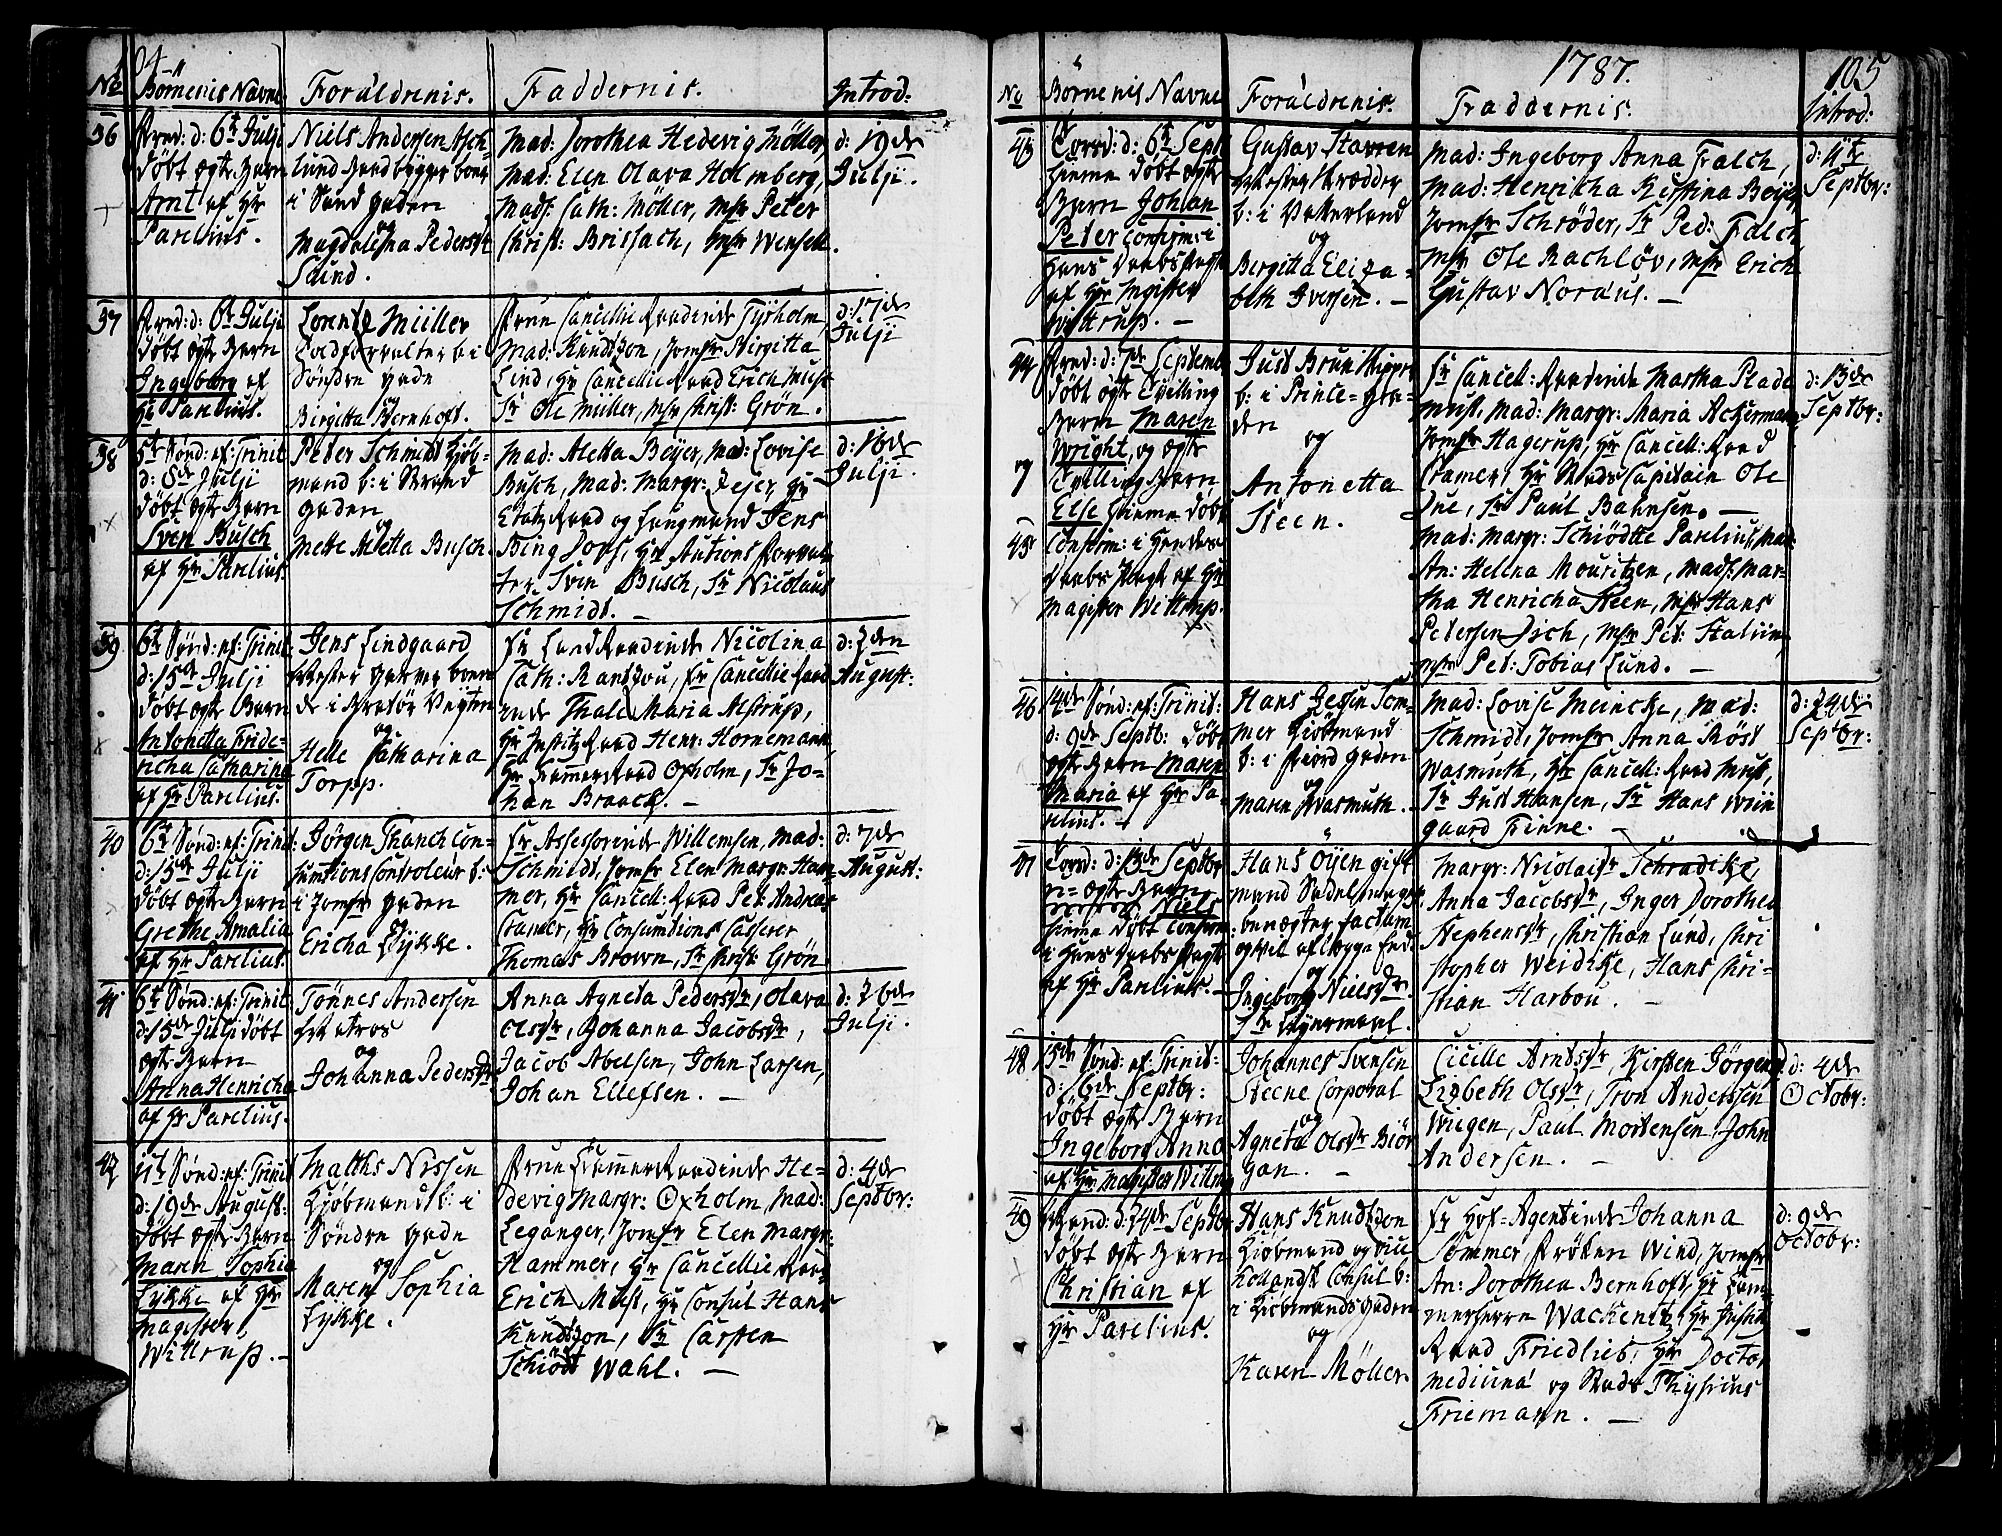 104
No
Børnenis Navne
Forældrenis.
Faddernis.
Introd:
36
Fred: d: 6te Julji
døbt ægte Barn
Arnt af Hr
Parelius.
Niels Andersen Asch-
lund boer
i Sand gaden
og
Magdalena Pedersdtr
Lund.
Mad: Dorothea Hedevig Møller,
Mad: Elen Olava Holmberg,
Mads: Cath: Møller, Msr Peter
Christ: Brissach, Msr Wensell.
d: 19de
Julji.
37
Fred: d: 6te Julji
døbt ægte Barn
Ingeborg af
Hr Parelius.
Lorentz Müller
Toldforvalter b: i
Søndre gade
og
Birgitta Bernhoft.
Frue Cancellie Raadinde Tyrholm,
Mad: Knudtzon, Jomfr Birgitta
Lind, Hr Cancellie Raad Erich Must
Sr Ole Müller, Msr Christ: Grøn.
d: 17de
Julji
38
5te Sønd: ef: Trinit
d: 8de Julji
døbt ægte Barn
Sven Busch
af Hr Parelius.
Peter Schmidt Kjøb-
mand b: i Strand
gaden
og
Mette Aletta Busch.
Mad: Aletta Beyer, Mad: Lovise
Busch, Mad: Margr: Jejer, Hr
Etatz Raad og Laugmand Jens
Bing Dons, Hr Auctions Forval-
ter Sven Busch, Sr Nicolaus
Schmidt.
d: 16de
Julji
39
6te Sønd: ef: Trinit
d: 15de Julji
døbt ægte Barn
Antonetta Fride-
richa Catharina
af Hr Parelius.
Jens Lindgaard
Mester boen
de i
og
Helle Catharina
Torpp.
Fr Land Raadinde Nicolina
Cath: Rantzou, Fr Cancellie Raad
inde Thale Maria Alstrup,
Hr Justitz Raad Henr: Hornemann,
Hr Kammer Raad Oxholm, Sr Jo-
han Braack.
d: 2den
August:
40
6te Sønd: ef: Trinit:
d: 15de Julji
døbt ægte Barn
Grethe Amalia
af Hr Parelius.
Jørgen Thanch Con-
sumtions Controleur b:
i Jomfr gaden
og
Ericha Lykke.
Fr Assessorinde Willemsen, Mad:
Schmidt, Jomfr Elen Margr: Ham-
mer, Hr Cancell: Raad Pet: Andreas
Cramer, Hr Consumtions Casserer
Thomas Brown, Sr Christ: Grøn
d: 7de
August:
41
6te Sønd: ef: Trinit
d: 15de Julji døbt
ægte Barn
Anna Henricha
af Hr Parelius.
Tønnes Andersen
Matros
og
Johanna Pedersdtr
Anna Agneta Pedersdtr, Olava
Olsdtr, Johanna Jacobsdtr,
Jacob Abelsen, John Larsen,
Johan Ellefsen.
d: 26de
Julji.
42
11te Sønd: ef: Trinit
d: 19de August:
døbt ægte Barn
Maren Sophia
Lykke af Hr
Magister
Wittrup.
Matths Nissen
Kjøbmand b: i
Søndre gade
og
Maren Sophia
Lykke.
Frue Kammer Raadinde He-
devig Margr: Oxholm, Mad:
Leganger, Jomfr Elen Margr:
Hammer, Hr Cancellie Raad
Erich Must, Hr Consul Hans
Knudtzon, Sr Carsten
Schiødt Wahl.
d: 4de
Septbr:
1787.
105
No
Børnenis Navne
Forældrenis.
Faddernis.
Introd:
43
Torsd: d: 6te Sept
hiemme døbt ægte
Barn Johan
Peter Confirm: i
Hans Daabs Pagt
af Hr Magister
Wittrup.
Gustav
Mester Skrædder
b: i Vaterland
og
Bergitta Eliza-
beth Iversen.
Mad: Ingeborg Anna Falch,
Mad: Henricha Kistina Beyer,
Jomfr Schrøder, Sr Ped: Falch
Msr Ole Rachløv, Msr Erich
Gustav Noræus.
d: 11te
Septbr:
44
Fred: d: 7de Septemb
døbt ægte Tvilling
Barn Maren
Wright, og ægte
og
45
Tvilling Barn
Else hiemme døbt
Confirm: i Hendes
Daabs Pagt af Hr
Magister Wittrup.
Just Brun
b: i Princens-ga-
den
og
Antonetta
Steen.
Fr Cancell: Raadinde Martha Plade
Must, Mad: Margr: Maria Ackermann
Jomfr Hagerup, Hr Cancell: Raad
Cramer, Hr Stads Capitain Ole
Due, Sr Paul Bahnsen.
Mad: Margr: Schiødtte Parelius, Mad:
An: Hellna Mouritzen, Mads: Mar-
tha Henricha Steen, Msr Hans
Petersen Dich, Msr Pet: Stalvim
Msr Pet: Tobias Lund.
d: 13de
Septbr:
46
14de Sønd: ef: Trinit:
d: 9de Septb: døbt
ægte Barn Maren
Maria af Hr Pa-
relius.
Hans Jessen Som-
mer Kiøbmand
b: i Fiord gaden
og
Maren Wasmuth.
Mad: Lovise Meincke, Mad:
Schmidt, Jomfr Anna Røst
Wasmuth, Hr Cancell: Raad Must,
Sr Just Hansen, Sr Hans Wiin
gaard Finne.
d: 24de
Septbr:
47
Torsd: d: 13de Septbr
u= ægte Barn
Niels
hiemme døbt Confirm:
i Hans Daabs Pagt
af Hr Parelius.
Hans Öyen gift
mand Sadelmager
benægter factum
og vil aflægge Eed
og
Ingeborg Nielsdtr.
1te Leyermaal.
Margr: Nicolaisdtr Schradike,
Anna Jacobsdtr, Inger Dorothea
Stephensdtr, Christian Lund, Chri
stopher Weidike, Hans Chri-
stian Harbou.
48
15de Sønd: ef: Trinit:
d: 16de Septbr:
døbt ægte Barn
Ingeborg Anna
af Hr Magister Wittrup
Johannes Svensen
Steene Corporal
og
Agneta Olsdtr Biør
gan.
Cicille Arntsdtr, Kirsten Jørgensd
Lizbeth Olsdtr, Tron Anderssen
Wiigen, Paul Mortensen, John
Andersen.
d: 4de
Octobr:
49
Mand: d: 24de Septbr
døbt ægte Barn
Christian af
Hr Parelius.
Hans Knudtzon
Kiøbmand og
Hollandsk Consul b:
i Kiøbmandsgaden
og
Karen Møller
Fr Hof-Agentinde Johanna
Sommer, Frøken Wind, Jomfr
An: Dorothea Bernhoft, Hr Kam-
merherre Wackenitz, Hr Justitz
Raad Friedlieb, Hr Doctor
medicinæ og Stads Physicus
Friemann.
d: 9de
Octobr: